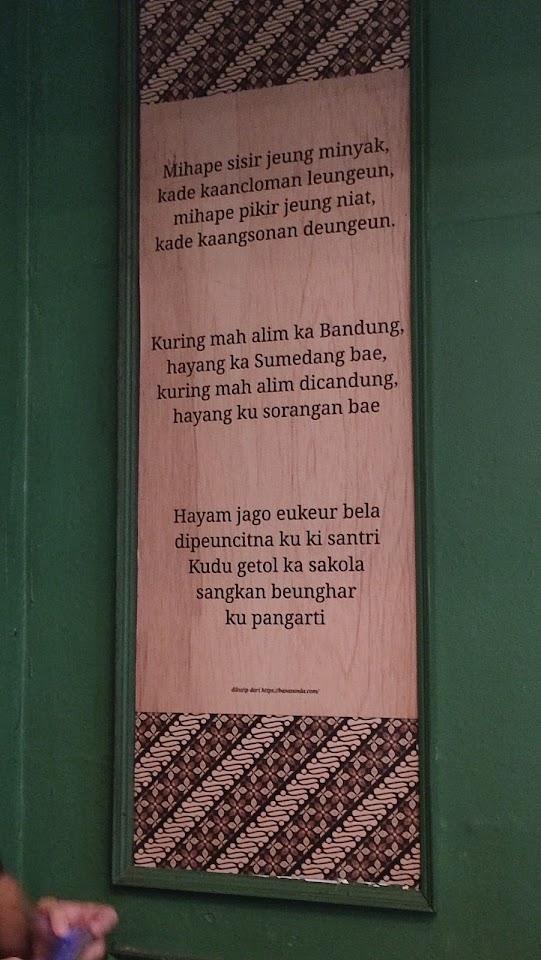 Mihape sisir jeung minyak,
kade kaancloman leungeun,
mihape pikir jeung niat,
kade kaangsonan deungeun.
Kuring mah alim ka Bandung,
hayang ka Sumedang bae,
kuring mah alim dicandung,
hayang ku sorangan bae
Hayam jago eukeur bela
dipeuncitna ku ki santri
Kudu getol ka sakola
sangkan beunghar
ku pangarti
dikutip dari https://basasunda.com/